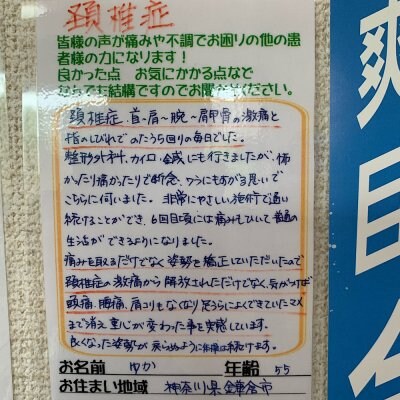 頚椎症
皆様の声が痛みや不調でお困りの他の患
者様の力になります！
良かった点　お気にかかる点など
なんでも結構ですのでお聞かせください。
頚椎症、首〜肩〜腕〜肩甲骨の激痛と
指のしびれでのたうち回りの毎日でした。
整形外科、カイロ、鍼にも行きましたが、怖
かったり痛かったりで断念、ワラにもすがる思いで
こちらに伺いました。非常にやさしい施術で通い
続けることができ、6回目頃には痛みもひいて普通の
生活ができるようになりました。
痛みを取るだけでなく姿勢を矯正していただいたので
頚椎症の激痛から解放されただけでなく、気がつけば
頭痛、腰痛、肩コリもなくなり足うらによくできていたマメ
まで消え、重心が変わった事を実感しています。
良くなった姿勢が戻らぬように
お名前　ゆか　年齢　55
お住まい地域　神奈川県鎌倉市
爽
目